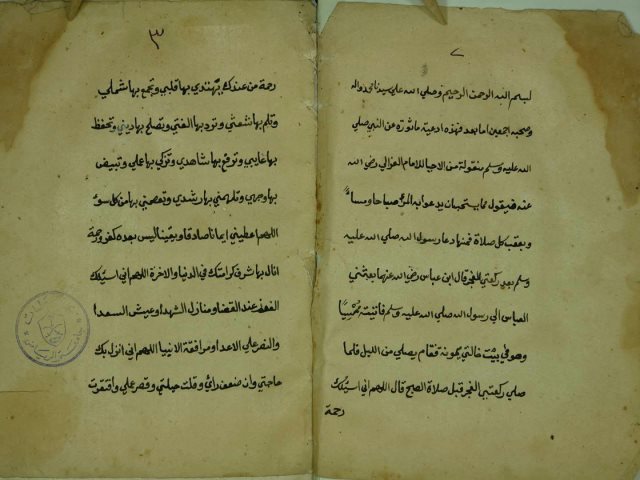 ٢
بسم الله الرحمن الرحيم وصلي الله علي سيدنا محمد واله
وصحبه اجمعين اما بعد فهذه ادعية ماثورة عن النبي صلي
الله عليه وسلم منقولة من الاحيا للامام الغزالي رضي الله
عنه فيقول مما يستحب ان يدعوا به المرؤ صباحا ومساءً
وبعقب كل صلاة فمنها دعا رسول الله صلي الله عليه
وسلم بعد ركعتي الفجر قال ابن عباس رضي الله عنهما بعثني
العباس الي رسول الله صلي الله عليه وسلم فاتيته مُمْسِيًا
وهو في بيت خالتي ميمونة فقام يصلي من الليل فلما
صلي ركعتي الفجر قبل صلاة الصبح قال اللهم اني اسيلك
رحمة
٣
رحمة من عندك تهتدي بها قلبي وتجمع بها شملي
وتلم بها شعثي وترد بها الفتي وتصلح بها ديني وتحفظ
بها غايبي وترفع بها شاهدي وتزكي بها عملي وتبيض
بها وجهي وتلهمني بها رشدي وتعصمني بها من كل سوء
اللهم اعطيني ايمانا صادقا ويقينا ليس بعده كفر ورحمة
انال بها شرف كرامتك في الدنيا والاخرة اللهم اني اسيلك
الفوز عند القضا ومنازل الشهدا وعيش السعدا
والنصر علي الاعدا ومرافقة الانبيا اللهم اني انزل بك
حاجتي وان ضعف رائي وقلت حيلتي وقصر عملي وافتقرت